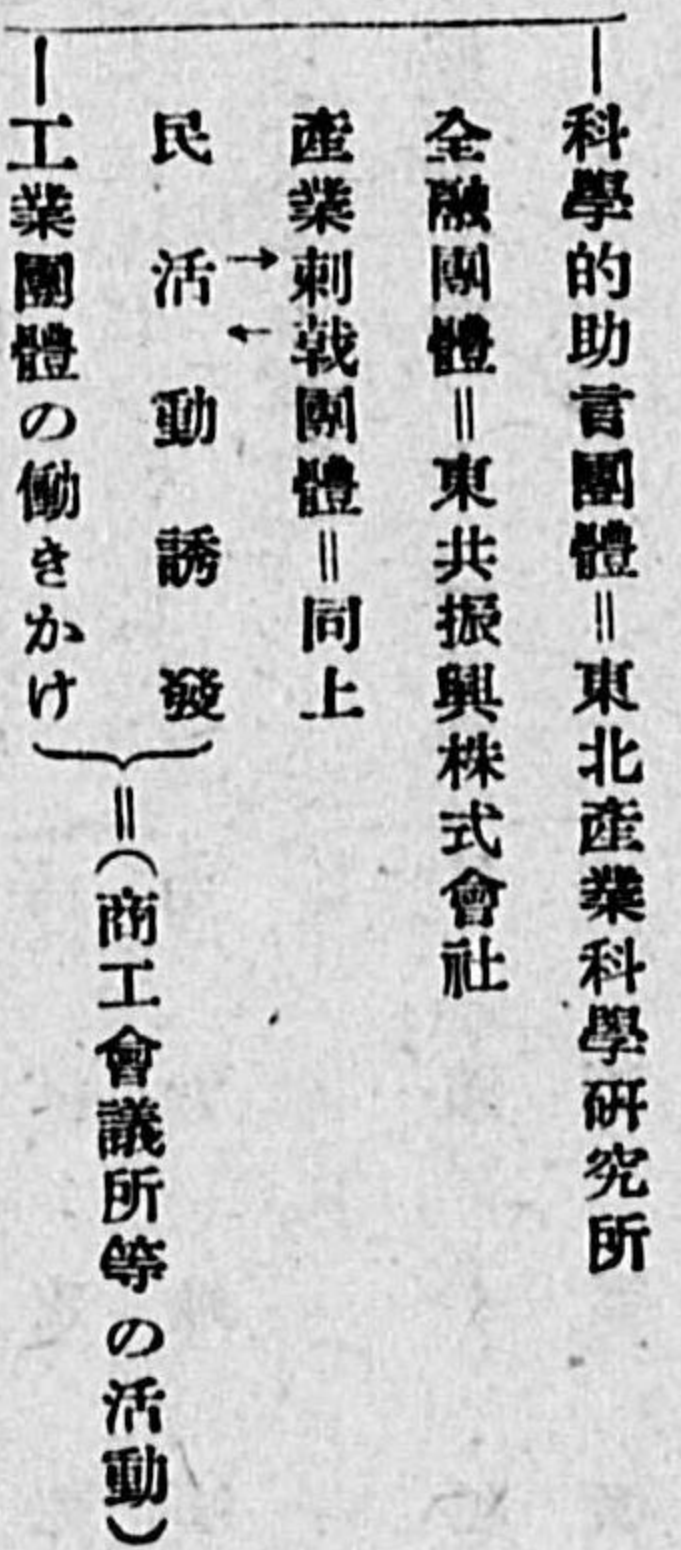 科學的助言團體＝東北産業科學研究所
全融團體＝東共振興株式會社
産業刺戟團體＝同上
民活動誘發
工業團體の働きかけ
＝（商工會議所等の活動）